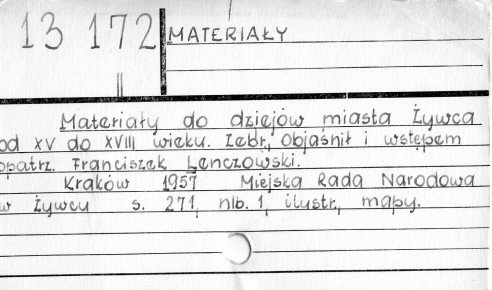 13 172
MATERIAŁY
Materiały do dziejów miasta Żywca
od XV do XVIII wieku. Zebr., Objaśnił i wstępem
opatrz. Franciszek Lenczowski.
Kraków 1957 Miejska Rada Narodowa
w Żywcu s. 271, nlb. 1, ilustr., mapy.